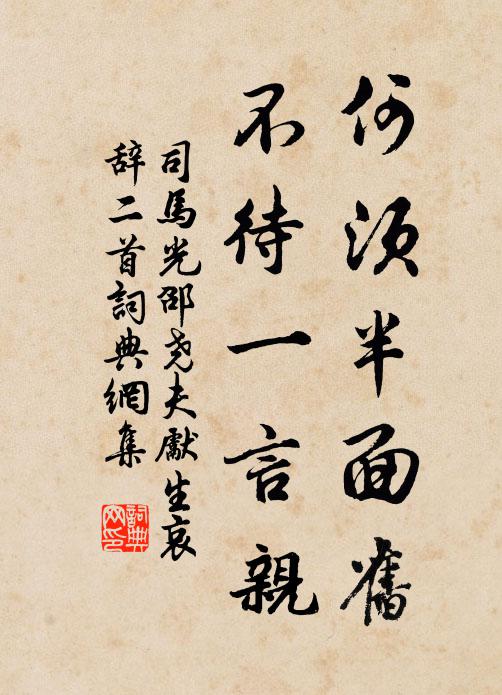 何須半面舊
不待一言親
司馬光邵堯夫獻生哀
辞二首詞典網集
詞典网印